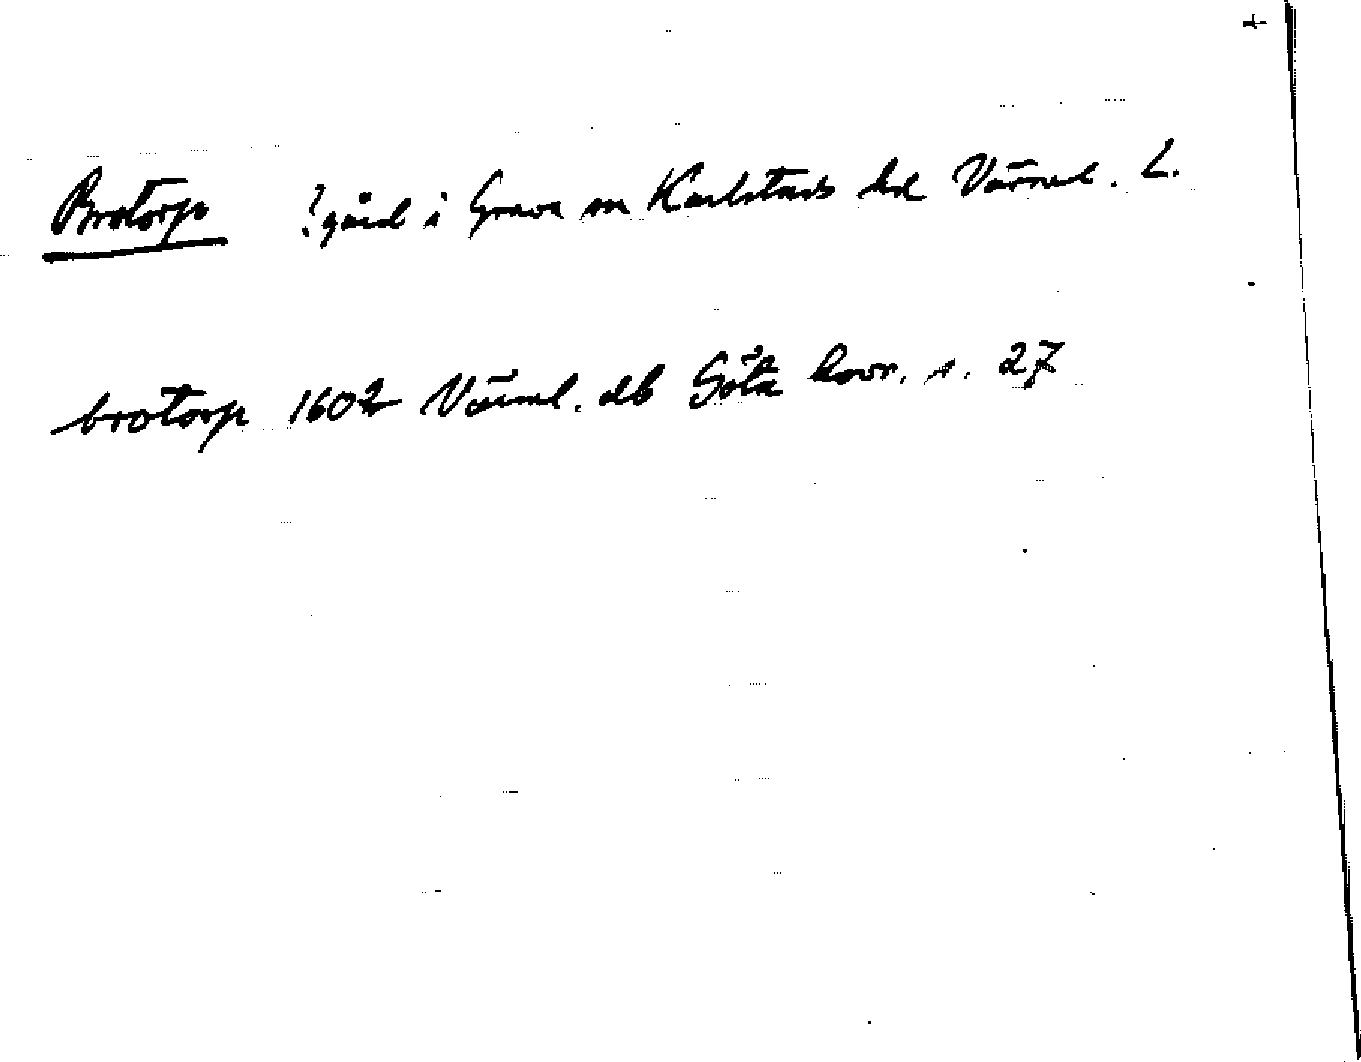 +
Brotorp ? gård i Grava sn Karlstads hd Värml. L.
brotorp 1602 Värml. db Göta hovr. s. 27